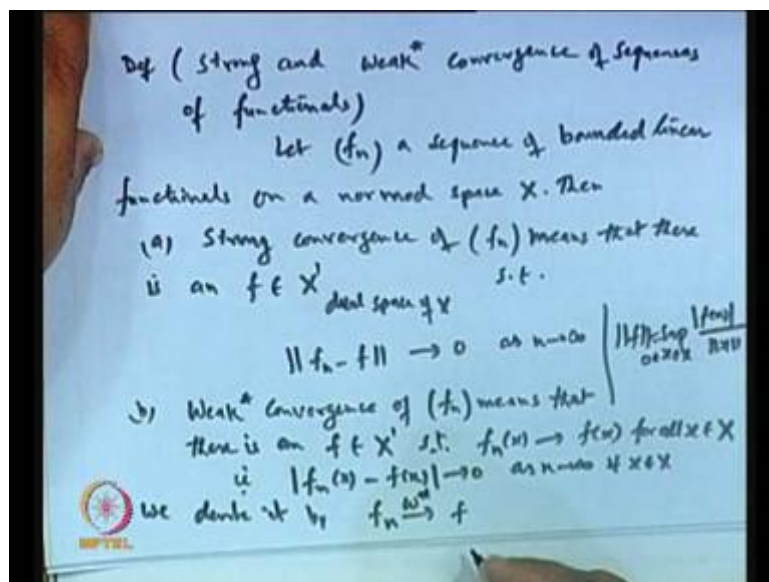 Def ( Strong and Weak* Convergence of Sequences
of functionals)
Let (fn) a sequence of bounded linear
functionals on a normed space X. Then
(a) Strong convergence of (fn) means that there
is an f ∈ X' s.t.
dual space of X
||fn - f|| → 0 as n→∞ | ||f|| = sup |f(x)| / ||x||
0≠x∈X
b) Weak* Convergence of (fn) means that
there is an f ∈ X' s.t. fn(x) → f(x) for all x ∈ X
ie |fn(x) - f(x)| → 0 as n→∞ ∀ x∈X
We denote it by fn w*→ f
NPTEL